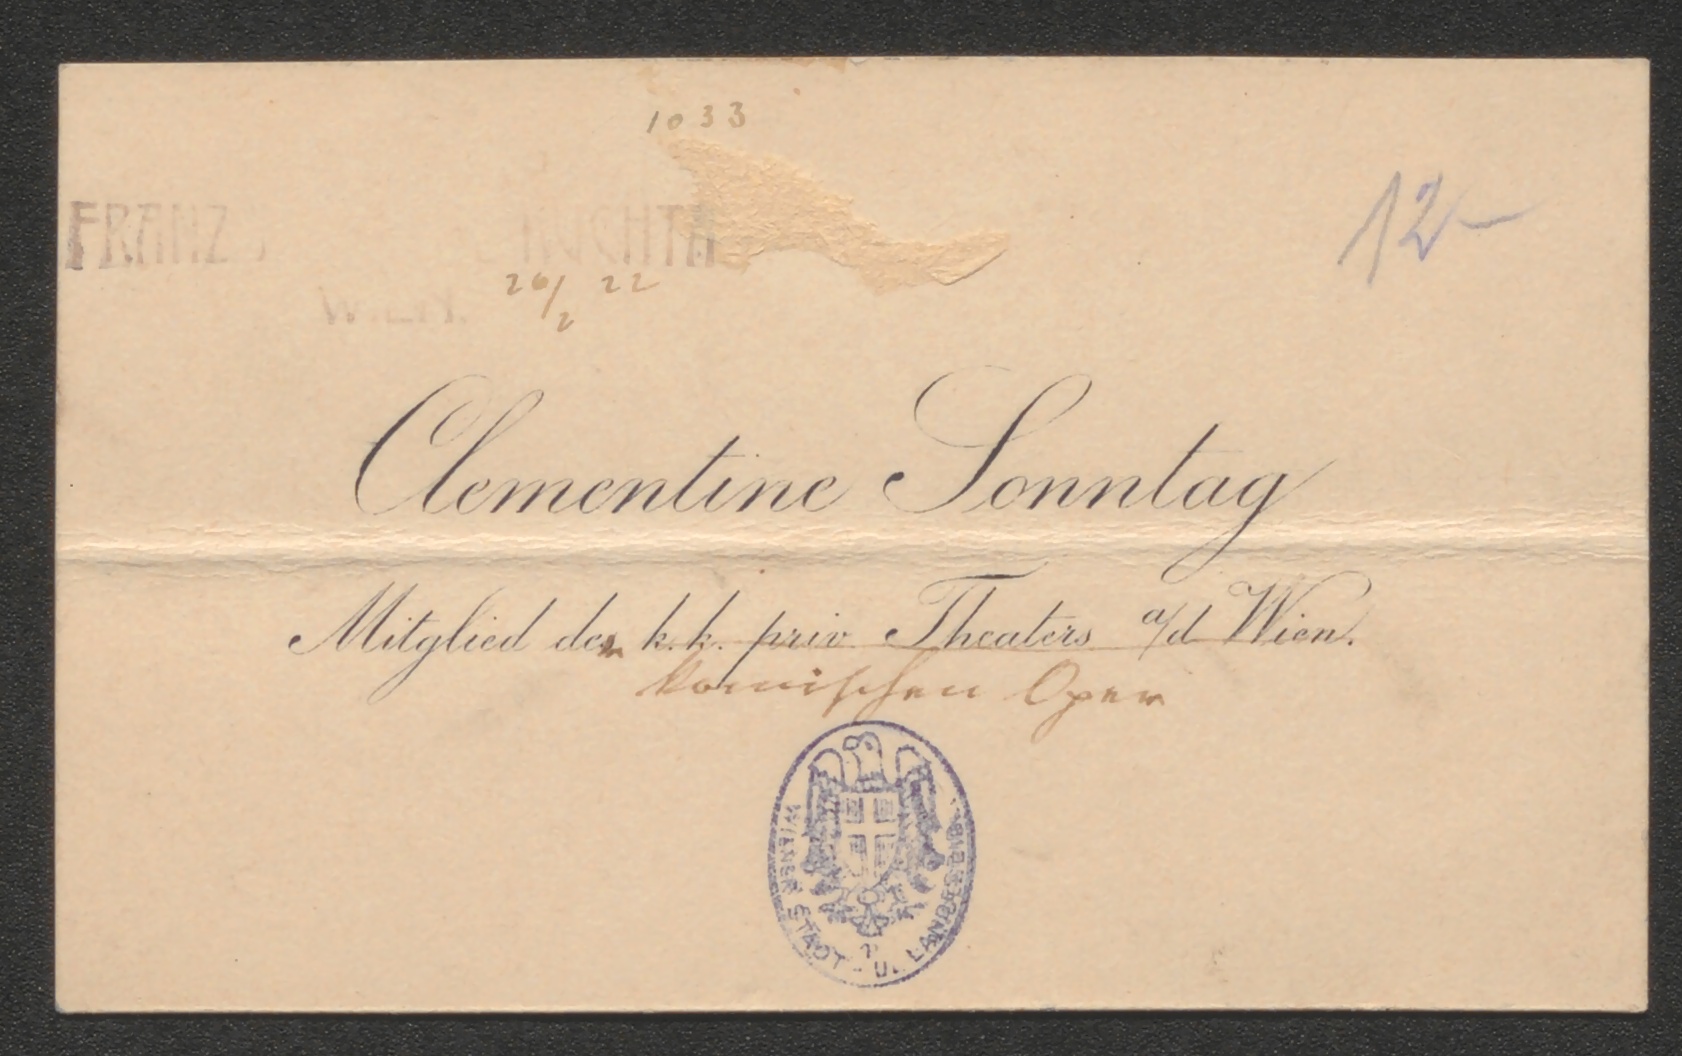 1033
12-
FRANZ
WIEN.
26/2 22
Clementine Sonntag
Mitglied der k. k. priv Theaters a/d Wien.
komischen Oper
WIENER STADT- U. LANDESBIBL.